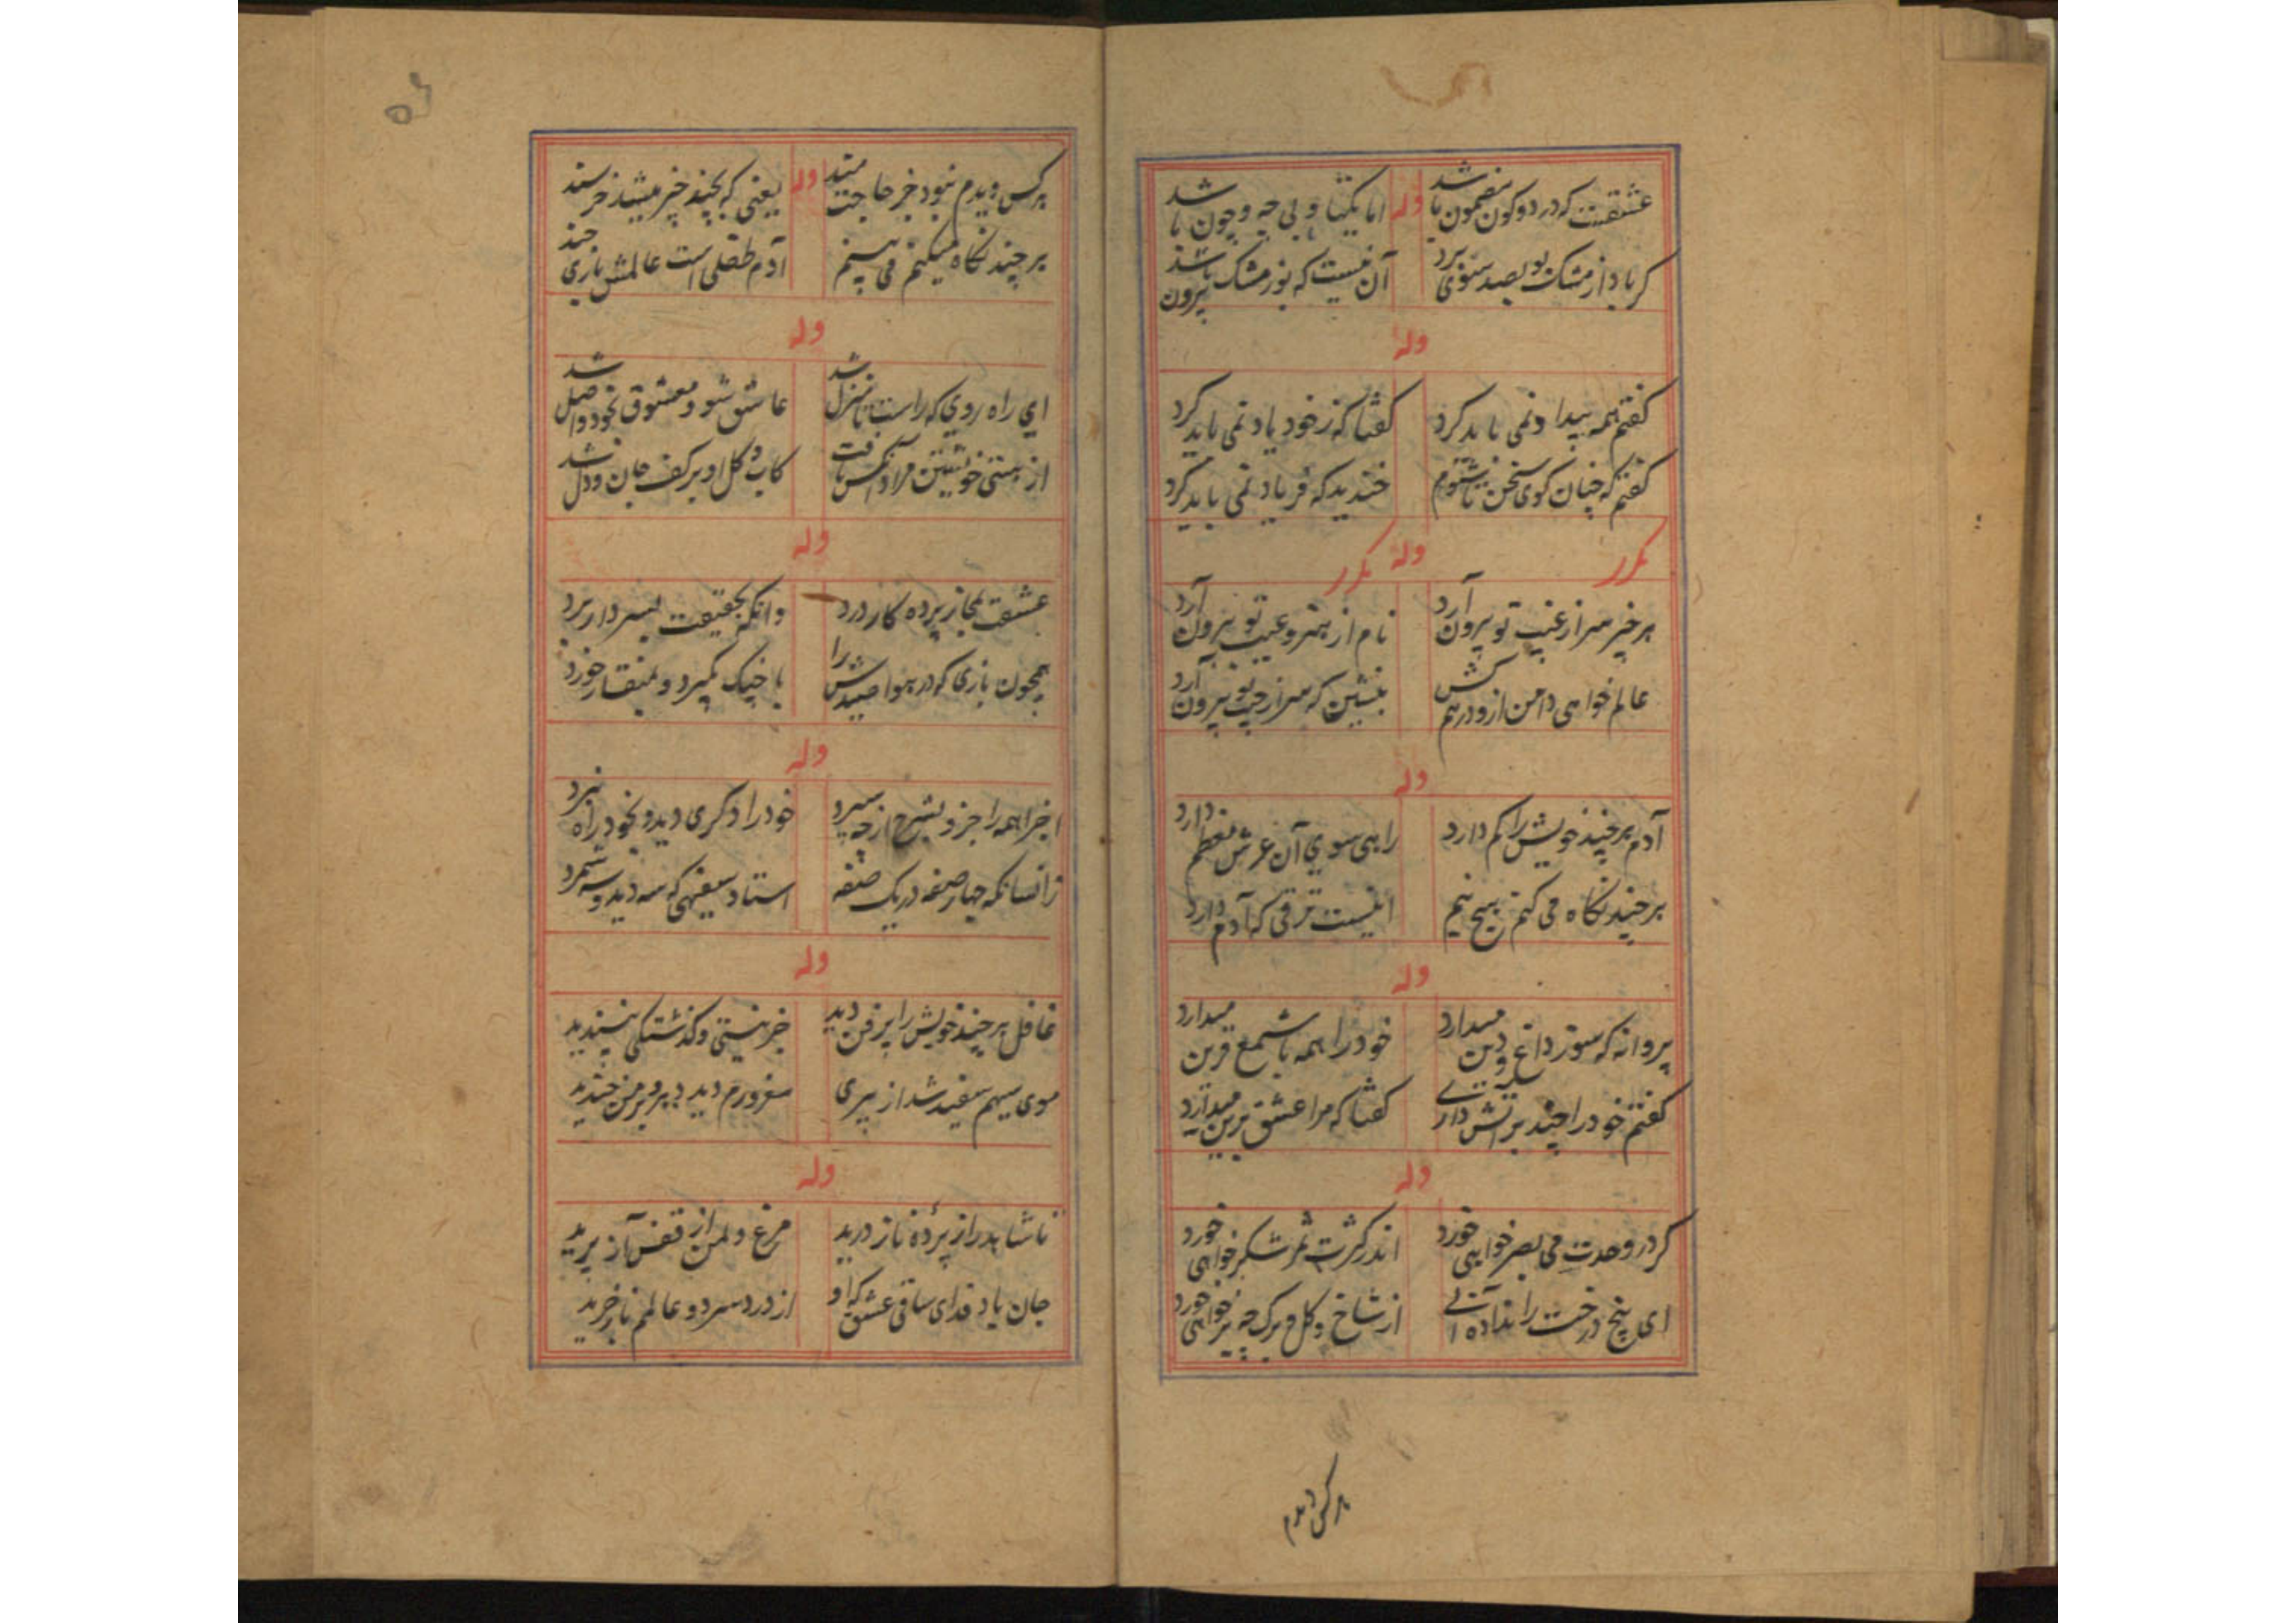 عشقیست که در دو کون مضمون باشد وله اما یکتا و بی چه و چون باشد
کر باد از مشک بو بصد سوی برد آن نیست که بو ز مشک بیرون باشد
وله
کفتم همه بیدار نمی باید کرد کفتا که ز خود یاد نمی باید کرد
کفتم که چنان کوی سخن تا شنوم خندید که فریاد نمی باید کرد
مکرر وله مکرر
برخیز سر از غیب تو بیرون آرد نام از هنر و عیب تو بیرون آرد
عالم خواهی دامن ازو درهم کش بنشین که سر از جیب تو بیرون آرد
وله
آدم هر چند خویش را کم دارد راهی سوی آن عرش معظم دارد
هر چند نکاه می کنم هیچ نیم اینست ترقی که آدم دارد
وله
پروانه که سوز داغ و دین میدارد خود را همه با شمع قرین میدارد
کفتم خود را چند بر آتش داری کفتا که مرا عشق برین میدارد
وله
کر در وحدت می بصر خواهی خورد اندر کثرت ثمر شکر خواهی خورد
ای بیخ درخت را نداده آبی از شاخ و کل و برک چه بر خواهی خورد
هر کس دیدم
۵۶
هر کس دیدم نبود جز حاجتمند وله یعنی که بچند چیز میشد خرسند
هر چند نکاه میکنم می بینم آدم طفلی است عالمش بازی چند
وله
ای راه روی که راست تا منزل شد عاشق شو و معشوق بخود واصل شد
از هستی خویشتن مراد آنکس یافت کاب و کل او بر کف جان و دل شد
وله
عشقت بمجاز پرده کار درد وانکه بحقیقت بسر دار برد
همچون بازی که در هوا صیدش را با چنک بگیرد و بمنقار خورد
وله
اجزا همه را جزو بشرح ارچه سپرد خود را دکری دید و بخود راه نبرد
زانسانکه چهار صفه در یک صفه استاد سفیهی که سه دید و سه شمرد
وله
غافل هر چند خویش را پر فن دید جز نیستی و کذشتکی نپسندید
موی سیهم سفید شد از پیری مغرورم دید دهر و بر من خندید
وله
تا شاهد راز پردهٔ ناز درید مرغ دلمن از قفس آز پرید
جان باد فدای ساقی عشق که او از درد سر دو عالمم باز خرید